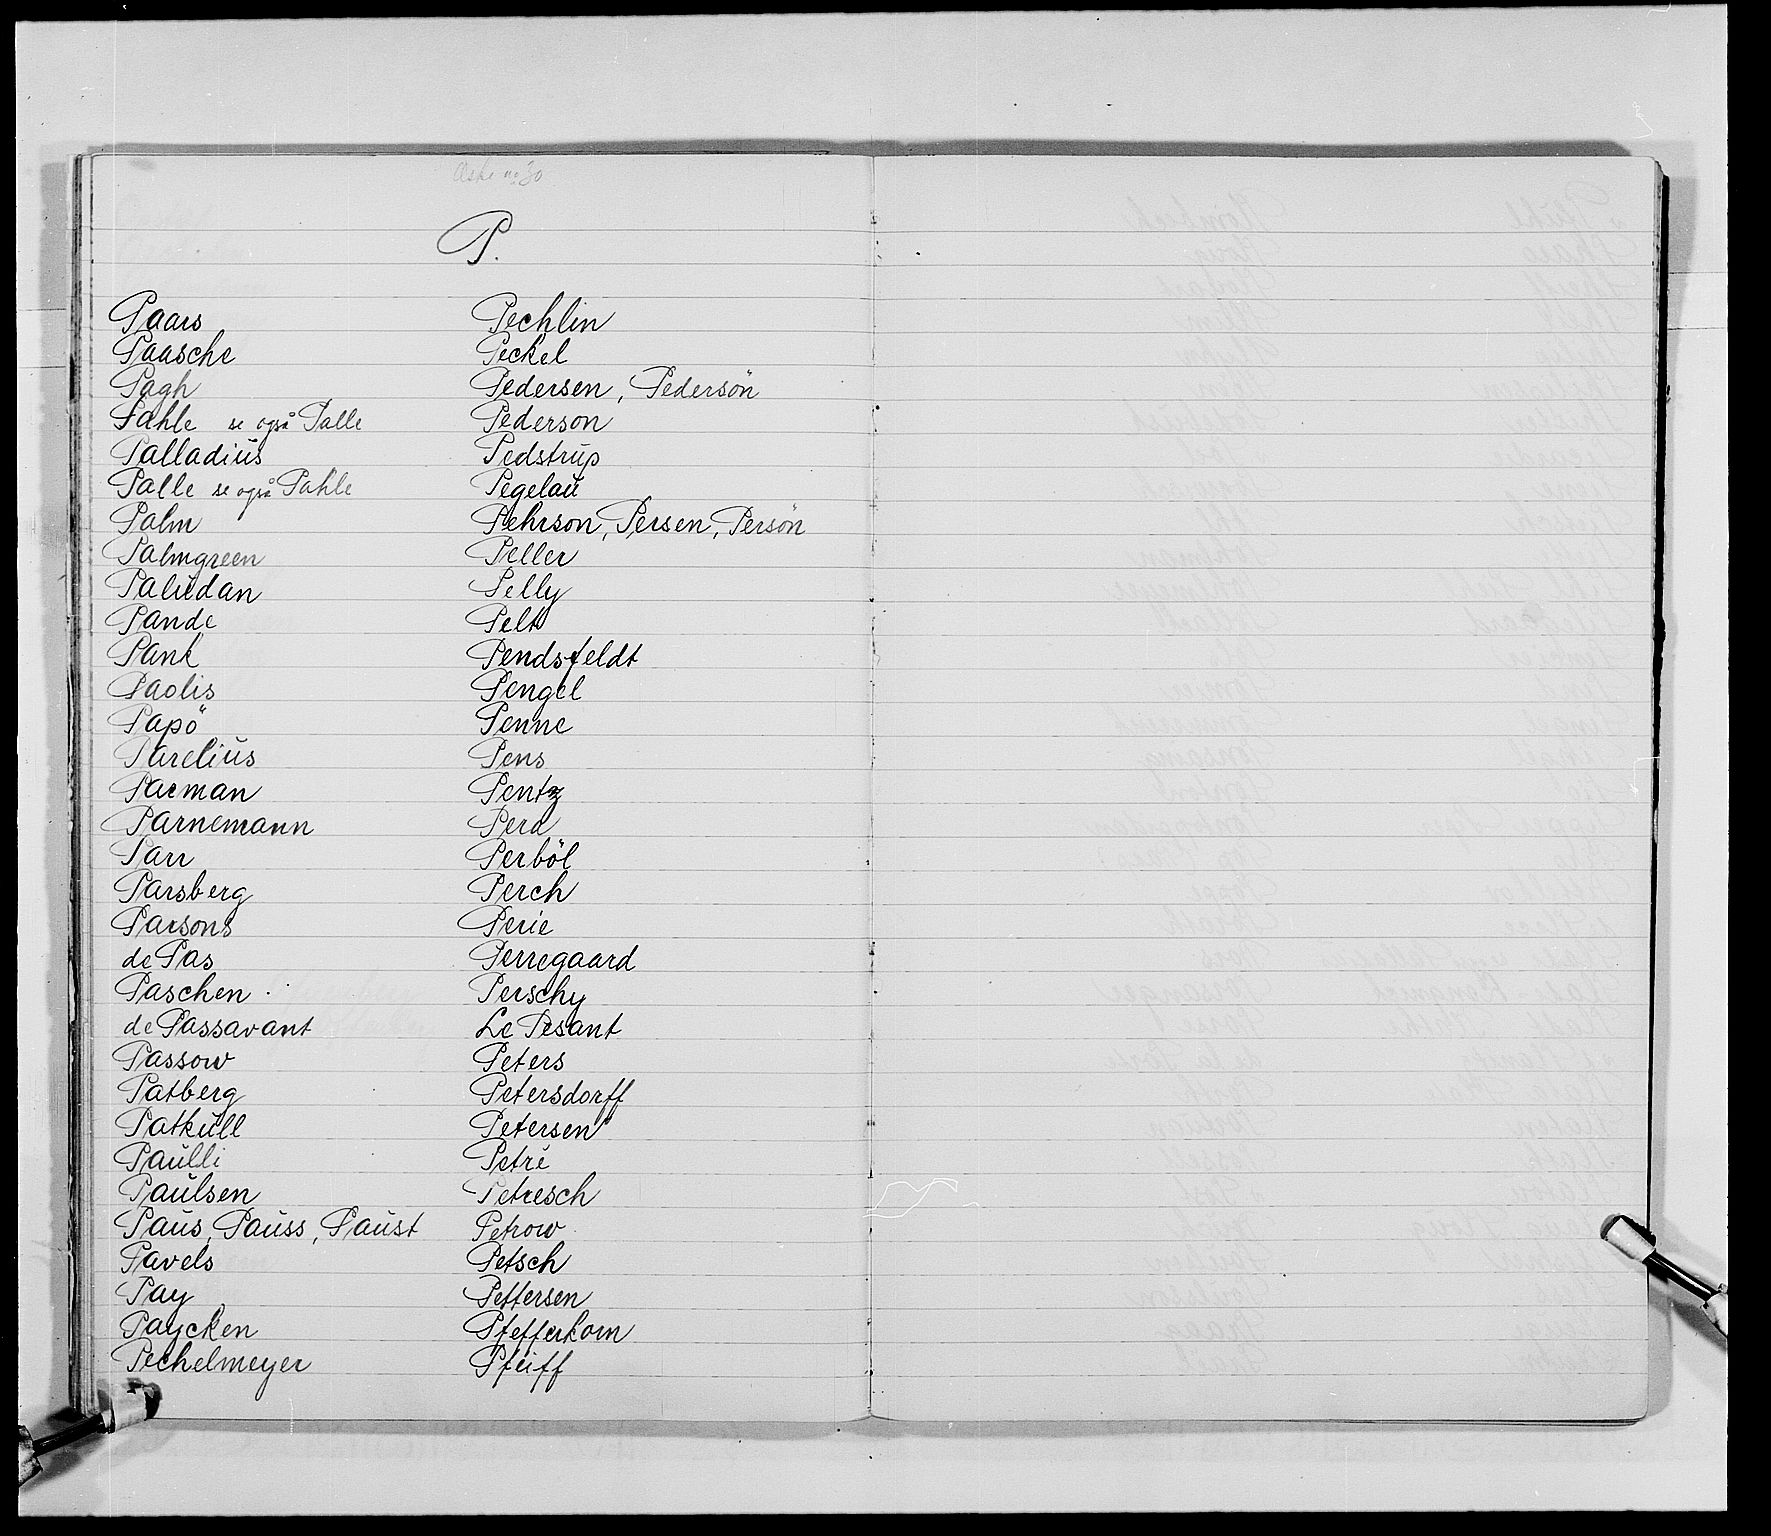 Aske no 30
P.
Paars
Paasche
Pagh
Pahle se også Palle
Palladius
Palle se også Pahle
Palm
Palmgreen
Paludan
Pande
Pank
Paolis
Papö
Parelius
Parman
Parnemann
Parr
Parsberg
Parsons
de Pas
Paschen
de Passavant
Passow
Patberg
Patkull
Paulli
Paulsen
Paus, Pauss, Paust
Pavels
Pay
Paycken
Pechelmeyer
Pechlin
Peckel
Pedersen, Pedersön
Pederson
Pedstrup
Pegelau
Pehrson, Persen, Persön
Peller
Pelly
Pelt
Pendsfeldt
Pengel
Penne
Pens
Pentz
Perd
Perböl
Perch
Perie
Perregaard
Perschy
Le Pesant
Peters
Petersdorff
Petersen
Petré
Petresch
Petrow
Petsch
Pettersen
Pfefferkorn
Pfeiff